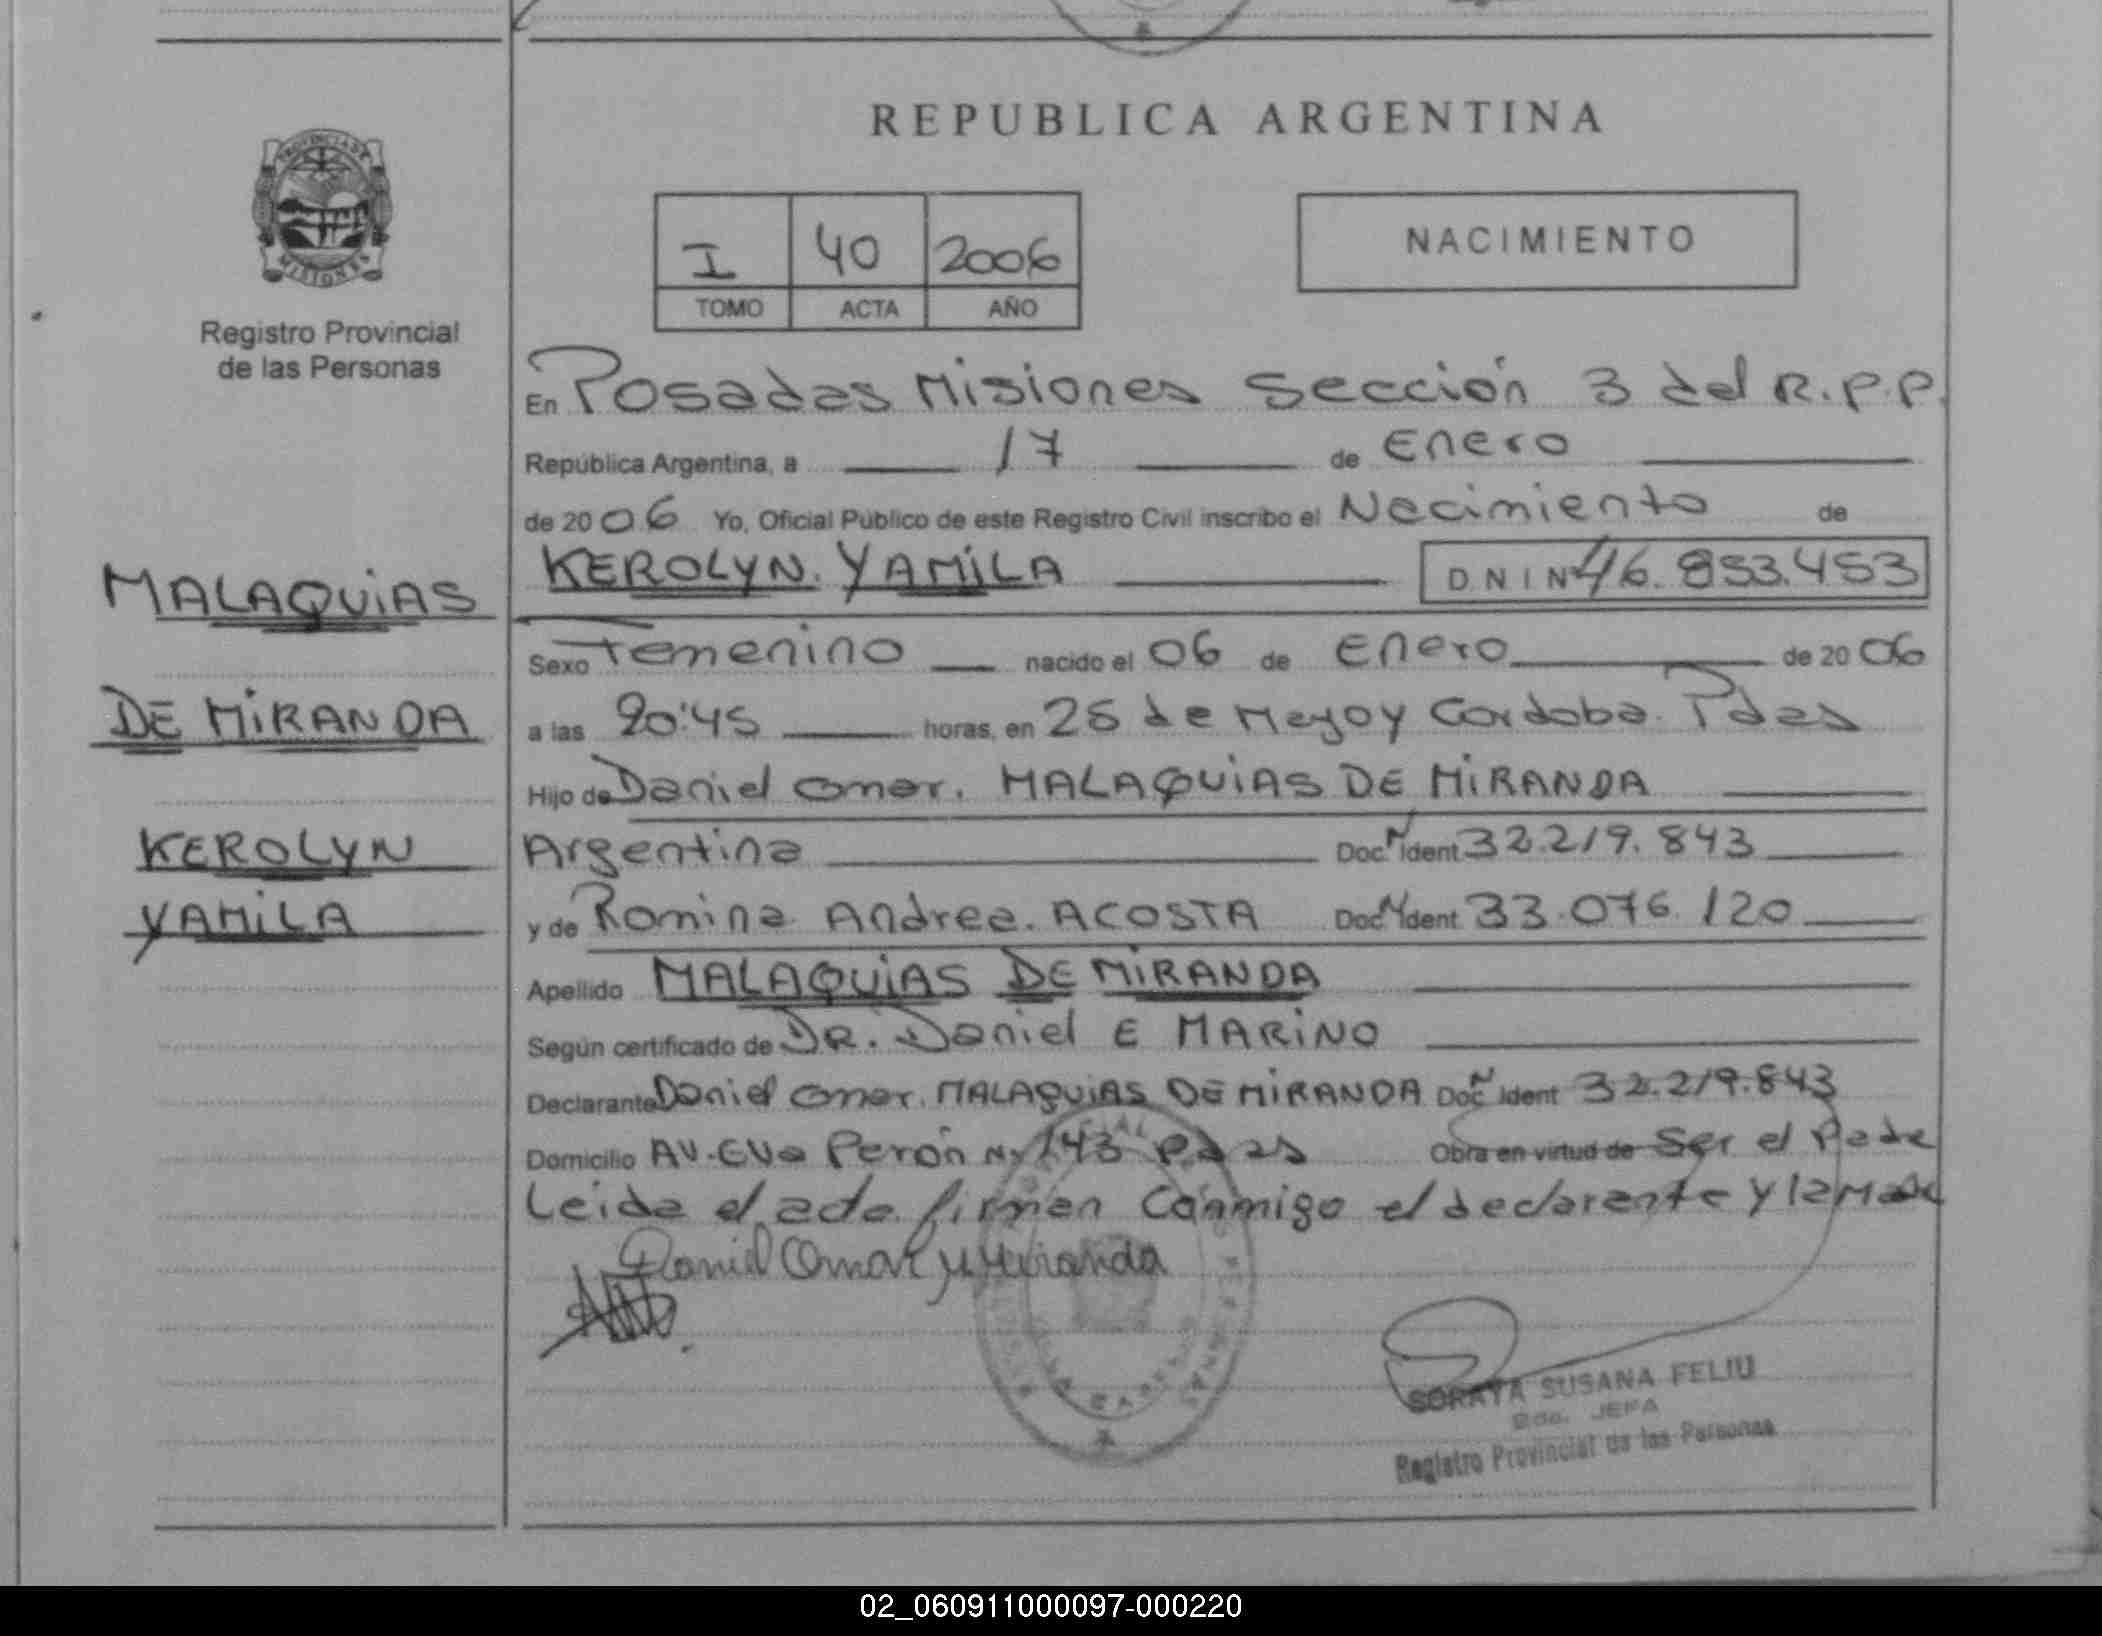 REPUBLICA ARGENTINA
PROVINCIA DE
MISIONES
Registro Provincial
de las Personas
I 40 2006
TOMO ACTA AÑO
NACIMIENTO
En Posadas Misiones Sección 3 del R.P.P.
República Argentina, a 17 de Enero
de 2006 Yo, Oficial Público de este Registro Civil inscribo el Nacimiento de
KEROLYN. YAMiLA D N I Nº 46.853.453
MALAQUiAS
DE MiRANDA
KEROLYN
YAMiLA
Sexo Femenino nacido el 06 de Enero de 2006
a las 20:45 horas, en 25 de Mayo y Cordoba. Pdas
Hijo de Daniel Omar. MALAQUiAS DE MiRANDA
Argentina Doc. Nº Ident 32.219.843
y de Romina Andrea. ACOSTA Doc. Nº Ident 33.076.120
Apellido MALAQUiAS DE MiRANDA
Según certificado de DR. Daniel E MARiNO
Declarante Daniel Omar. MALAQUiAS DE MiRANDA Doc. Nº Ident 32.219.843
Domicilio AV. Eva Perón Nº 143 Pdas Obra en virtud de Ser el Padre
Leida el acta firman Conmigo el declarante y la Madre
Daniel Omar M Miranda
SORAYA SUSANA FELIU
Bda. JEFA
Registro Provincial de las Personas
02_060911000097-000220